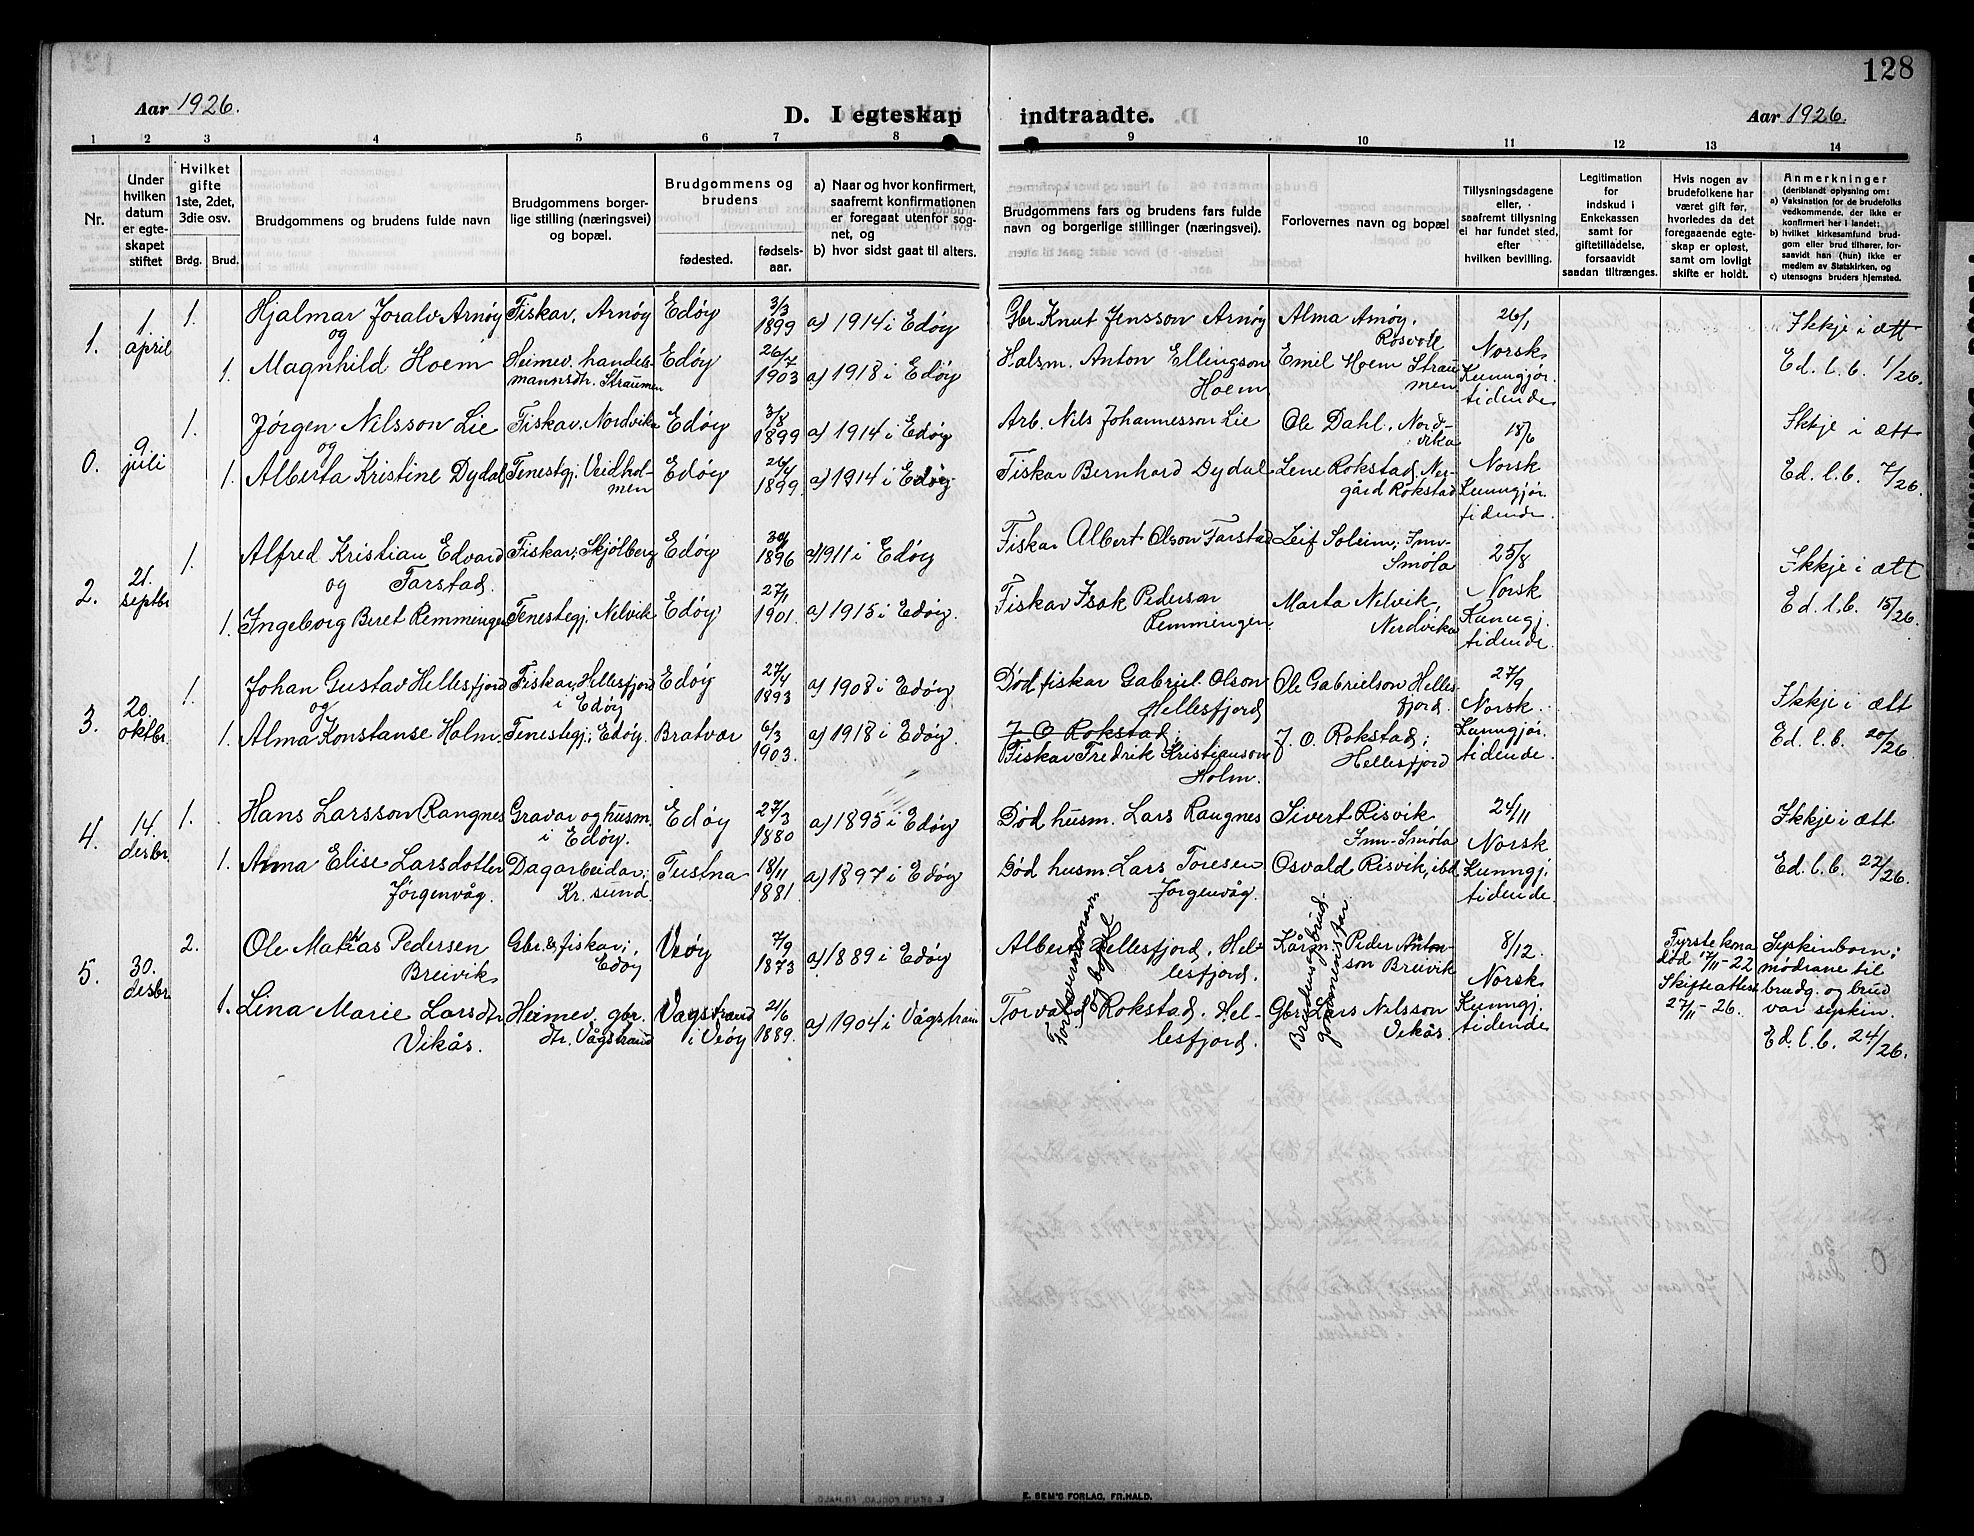 128
Aar 1926.
D. I egteskap indtraadte.
Aar 1926.
1 2 3 4 5 6 7 8 9 10 11 12 13 14
Nr.
Under hvilken datum er egteskapet stiftet
Hvilket gifte 1ste, 2det, 3die osv.
Brdg. Brud.
Brudgommens og brudens fulde navn
Brudgommens borgerlige stilling (næringsvei) og bopæl.
Brudgommens og brudens
fødested.
fødselsaar.
a) Naar og hvor konfirmert, saafremt konfirmationen er foregaat utenfor sognet, og
b) hvor sidst gaat til alters.
Brudgommens fars og brudens fars fulde navn og borgerlige stillinger (næringsvei).
Forlovernes navn og bopæl
Tillysningsdagene eller, saafremt tillysning ei har fundet sted, efter hvilken bevilling.
Legitimation for indskud i Enkekassen samt for giftetilladelse, forsaavidt saadan tiltrænges.
Hvis nogen av brudefolkene har været gift før, hvorledes da det foregaaende egteskap er opløst, samt om lovligt skifte er holdt.
Anmerkninger
(deriblandt oplysning om:
a) Vaksination for de brudefolks vedkommende, der ikke er konfirmert her i landet;
b) hvilket kirkesamfund brudgom eller brud tilhører, forsaavidt han (hun) ikke er medlem av Statskirken, og
c) utensogns bruders hjemsted.
1. 1. april 1. Hjalmar Joralv Arnøy og Fiskar, Arnøy Edøy 3/3 1899 a) 1914 i Edøy Gbr. Knut Jensson Arnøy Alma Arnøy, Rosvoll 26/1 Norsk Kunngjør. tidende Ikkje i ætt
1. Magnhild Hoem Heimev. handelsmannsdtr. Straumen Edøy 26/7 1903 a) 1918 i Edøy Halsm. Anton Ellingson Hoem Emil Hoem Straumen Ed. l. b. 1/26.
0. 9 juli 1. Jørgen Nilsson Lie og Fiskar, Nordvika Edøy 3/8 1899 a) 1914 i Edøy Arb. Nils Johannesson Lie Ole Dahl, Nordvika 18/6 Norsk Kunngjør. tidende Ikkje i ætt
1. Alberta Kristine Dydal Tenestgj. Veidholmen Edøy 26/4 1899 a) 1914 i Edøy. Fiskar Bernhard Dydal Lene Rokstad, Nergård Rokstad Ed. l. b. 7/26.
2. 21. septbr 1. Alfred Kristian Edvard Tarstad og Fiskar, Skjølberg Edøy 1896 a) 1911 i Edøy Fiskar Albert Olson Tarstad Leif Soleim, Inn-Smøla 25/8 Norsk Kunngj. tidende. Ikkje i ætt
1. Ingeborg Beret Remmingen Tenestegj. Nelvik Edøy 27/1 1901. a) 1915 i Edøy. Fiskar Isak Pederson Remmingen Marta Nelvik, Nordvika Ed. l. b. 15/26.
3. 20. oktbr. 1. Johan Gustav Hellesfjord og Fiskar, Hellesfjord i Edøy Edøy 27/4 1893 a) 1908 i Edøy Død fiskar Gabriel Olson Hellesfjord Ole Gabrielson Hellesfjord. 27/9 Norsk. Kunngjør. tidende. Ikkje i ætt
1. Alma Konstanse Holm. Tenestegj.; Edøy. Bratvær 6/3 1903. a) 1918 i Edøy. J. O. Rokstad, Fiskar Fredrik Kristianson Holm. J. O. Rokstad; Hellesfjord Ed. l. b. 20/26.
4. 14. desbr. 1. Hans Larsson Rangnes Gravar og husm. i Edøy. Edøy 27/3 1880 a) 1895 i Edøy Død husm. Lars Rangnes Sivert Risvik Inn-Smøla 24/11 Norsk Kunngj. tidende. Ikkje i ætt
1. Anna Elise Larsdotter Jørgenvåg. Dagarbeidar; Kr.sund. Tustna 18/11 1881. a) 1897 i Edøy Død husm Lars Toresen Jørgenvåg. Osvald Risvik, ibd. Ed. l. b. 22/26.
5. 30. desbr 2. Ole Mathias Pedersen Breivik Gbr. & fiskar; Edøy Veøy 7/9 1873 a) 1889 i Edøy Albert Hellesfjord, Hellesfjord. Kårm. Peder Antonson Breivik 8/12. Norsk Kunngj. tidende Fyrste kona død 17/11-22 Skifteattest 27/11-26. Syskinborn; mødrane til brudg. og brud var syskin.
1. Lina Marie Larsdtr Vikås. Heimev. gbr. dtr. Vågstrand Vågstrand i Veøy 21/6 1889. a) 1904 i Vågstrand Torvald Rokstad, Hellesfjord. Gbr. Lars Nilsson Vikås. Ed. l. b. 24/26.
Forlovernes navn og bopel
Brudens og brudgommens far.
E. SEM'S FORLAG, FR.HALD.